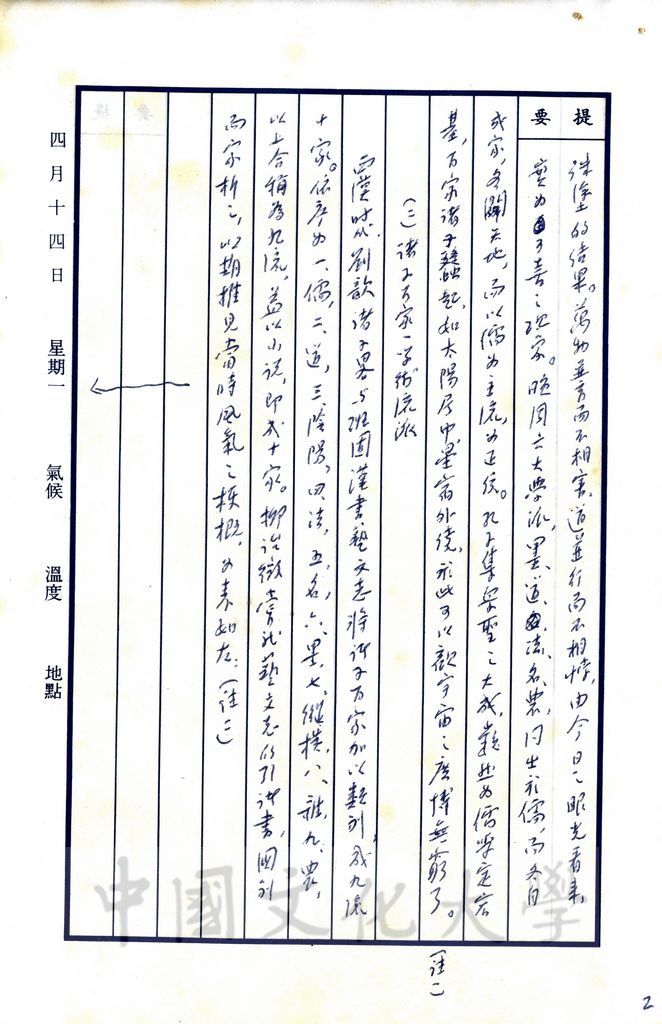 提要
誅塗的結果。萬物並育而不相害,道並行而不相悖,由今日之眼光看來,
實為可喜之現象。晚周六大學派,墨、道、法、名、農,同出於儒,而各自
成家,各闢天地,而以儒為主流,為正統。孔子集眾聖之大成,巍然為儒學定宏
基,百家諸子蠭起,如太陽居中,星宿外繞,於此可以觀宇宙之廣博無窮了。(註一)
(二)諸子百家—學術流派
西漢時代,劉歆諸子畧與班固漢書藝文志將諸子百家加以類別,成九流
十家。依序為一、儒,二、道,三、陰陽,四、法,五、名,六、墨,七、縱橫,八、雜,九、農,
以上合稱為九流,益以小說,即成十家。柳詒徵嘗就藝文志所引諸書,國別
而家析之,以期推見當時風氣之梗概,如表如左:(註二)
四月十四日 星期一 氣候 溫度 地點
中國文化大學
2